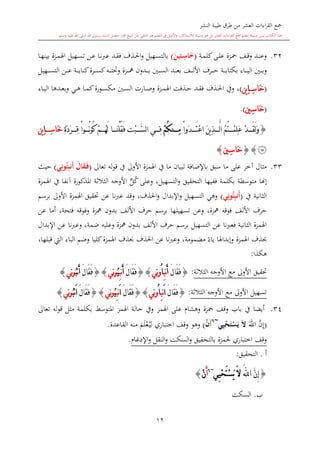 جمع القراءات العشر من طرق طيبة النشر
٣٢. وعند وقف حمزة على كلمة (خَاسِئِينَ) بالتسهيل والحذف فقد عبرنا عن تسهيل الهمزة بينها
وبين الياء بكتابة حرف الألف بعد السين بدون همزة وتحته كسرة كناية عن التسهيل
، وفي الحذف فقد حذفت الهمزة وصارت السين مكسورة كما هي وبعدها الياء
(خَاسِينَ).
﴿ وَلَقَدْ عَلِمْتُمُ الَّذِينَ اعْتَدَوْا مِنكُمْ فِي السَّبْتِ فَقُلْنَا لَهُمْ كُونُوا قِرَدَةً
﴿ خَاسِينَ ﴾
٣٣. مثال آخر على ما سبق بالإضافة لبيان ما في الهمزة الأولى في قوله تعالى (فَقَالَ أَنبِئُونِي) حيث
إنها متوسطة بكلمة ففيها التحقيق والتسهيل، وعلى كلٍّ الأوجه الثلاثة المذكورة آنفا في الهمزة
الثانية في (أَنبِئُونِي) وهي التسهيل والإبدال والحذف، وقد عبرنا عن تحقيق الهمزة الأولى برسم
حرف الألف فوقه همزة، وعن تسهيلها برسم حرف الألف بدون همزة وفوقه فتحة، أما عن
الهمزة الثانية فعبرنا عن التسهيل برسم حرف الألف بدون همزة وعليه ضمة، وعبرنا عن الإبدال
بحذف الهمزة وإبدالها ياءً مضمومة، وعبرنا عن الحذف بحذف الهمزة كليا وضم الباء التي قبلها،
هكذا:
تحقيق الأولى مع الأوجه الثلاثة:
تسهيل الأولى مع الأوجه الثلاثة:
٣٤. أيضا في باب وقف حمزة وهشام على الهمز وفي حالة الهمز المتوسط بكلمة مثل قوله تعالى
(إِنَّ اللَّهَ لَا يَسْتَحْيِي أَن) وهو وقف اختباري لِيُعْلَمَ منه القاعدة.
وقف اختباري لحمزة بالتحقيق والسكت والنقل والإدغام.
أ. التحقيق:
﴿ إِنَّ اللَّهَ لَا يَسْتَحْيِي أَنْ ﴾
ب. السكت
١٢